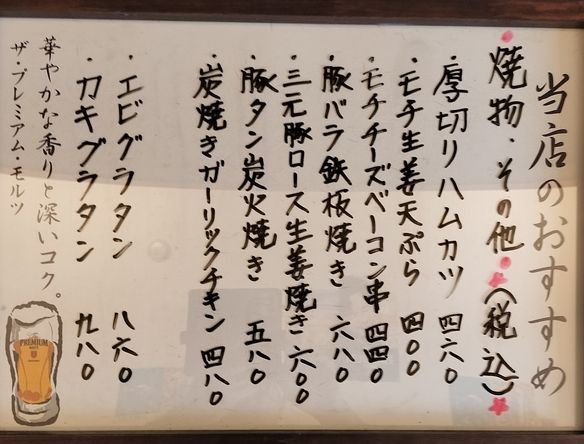 当店のおすすめ
焼物・その他(税込)
・厚切りハムカツ 四六〇
・モチ生姜天ぷら 四〇〇
・モチチーズベーコン串 四四〇
・豚バラ鉄板焼き 六八〇
・三元豚ロース生姜焼き 六〇〇
・豚タン炭火焼き 五八〇
・炭焼きガーリックチキン 四八〇
・エビグラタン 八六〇
・カキグラタン 九八〇
華やかな香りと深いコク。
ザ・プレミアム・モルツ
PREMIUM